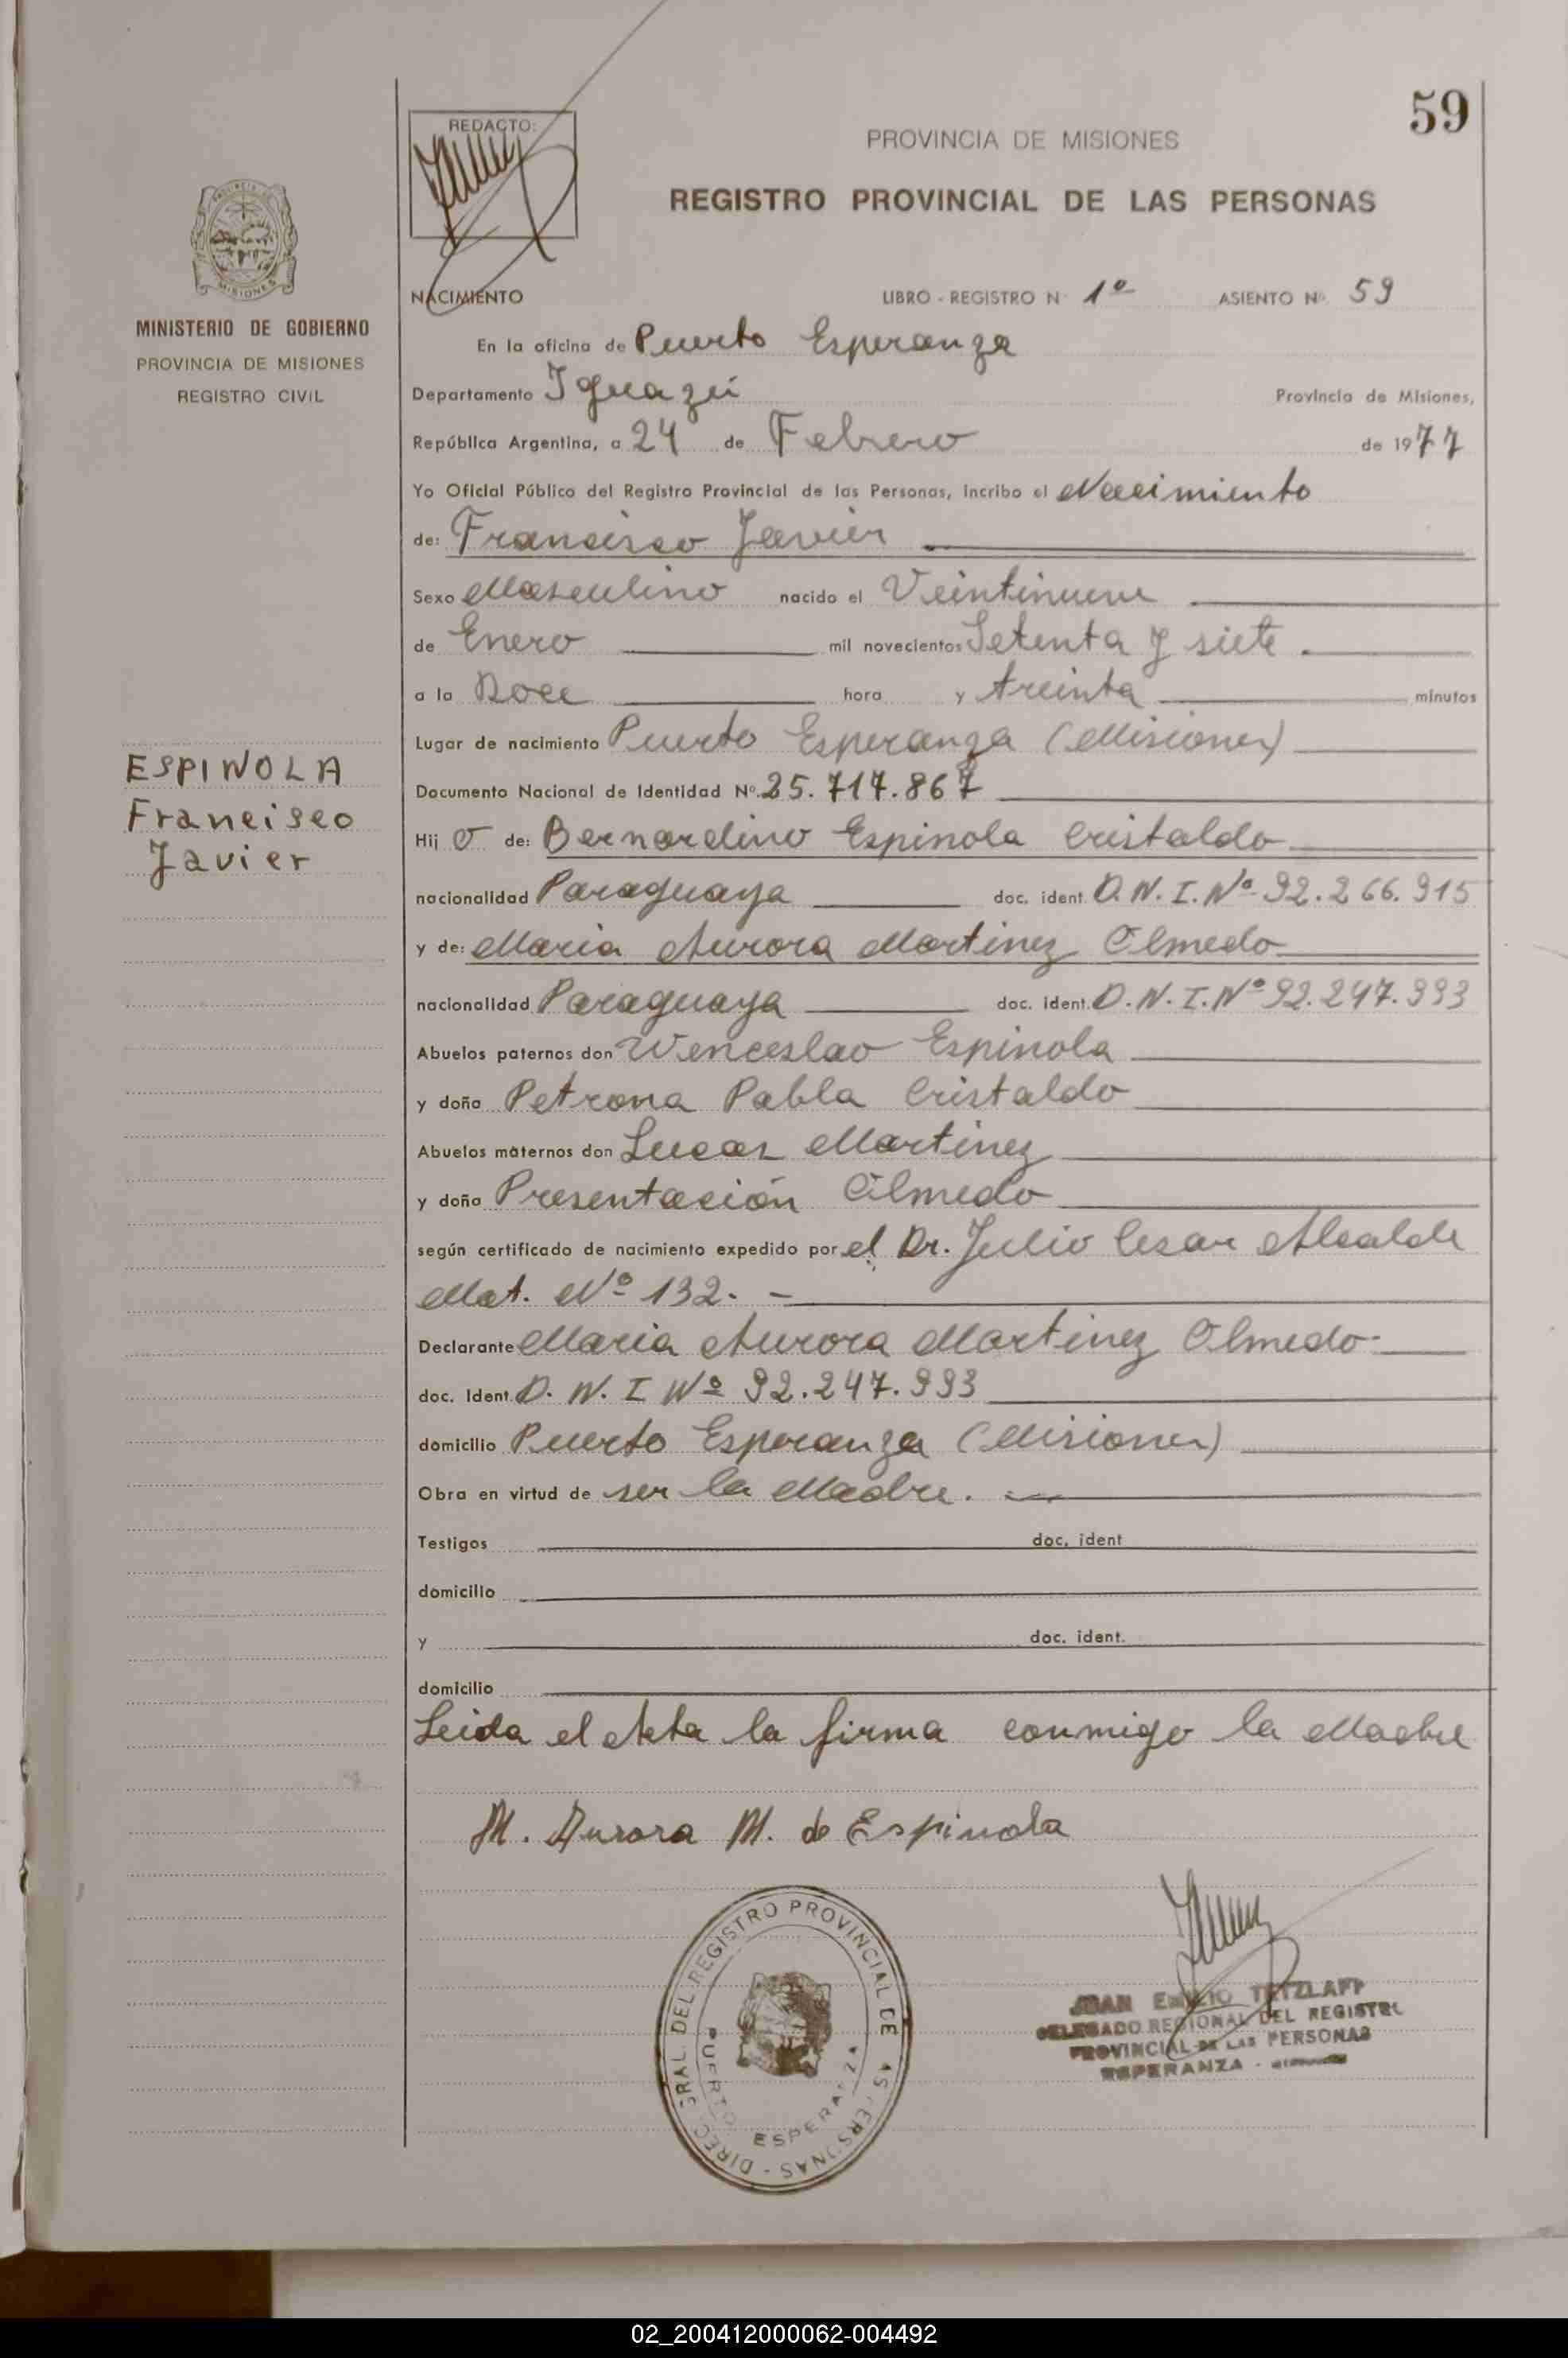 59
REDACTO:
PROVINCIA DE MISIONES
REGISTRO PROVINCIAL DE LAS PERSONAS
MISIONES
MINISTERIO DE GOBIERNO
PROVINCIA DE MISIONES
REGISTRO CIVIL
ESPINOLA
Francisco
Javier
NACIMIENTO LIBRO - REGISTRO Nº 1º ASIENTO Nº 59
En la oficina de Puerto Esperanza
Departamento Iguazú Provincia de Misiones,
República Argentina, a 24 de Febrero de 1977
Yo Oficial Público del Registro Provincial de las Personas, incribo el Nacimiento
de: Francisco Javier
Sexo Masculino nacido el Veintinueve
de Enero mil novecientos Setenta y siete.
a la Doce hora y treinta minutos
Lugar de nacimiento Puerto Esperanza (Misiones)
Documento Nacional de Identidad Nº 25.717.867
Hij o de: Bernardino Espinola Cristaldo
nacionalidad Paraguaya doc. ident. D.N.I.Nº 92.266.915
y de: Maria Aurora Martinez Olmedo
nacionalidad Paraguaya doc. ident. D.N.I.Nº 92.247.993
Abuelos paternos don Wenceslao Espinola
y doña Petrona Pabla Cristaldo
Abuelos maternos don Lucas Martinez
y doña Presentación Olmedo
según certificado de nacimiento expedido por el Dr. Julio Cesar Alcalde
Mat. Nº 132. -
Declarante Maria Aurora Martinez Olmedo-
doc. Ident. D.N.I Nº 92.247.993
domicilio Puerto Esperanza (Misiones)
Obra en virtud de ser la Madre.
Testigos doc. ident
domicilio
y doc. ident.
domicilio
Leida el Acta la firma conmigo la Madre
M. Aurora M. de Espinola
DIREC. GRAL. DEL REGISTRO PROVINCIAL DE LAS PERSONAS -
PUERTO ESPERANZA
JUAN EMILIO TETZLAFF
DELEGADO REGIONAL DEL REGISTRO
PROVINCIAL DE LAS PERSONAS
ESPERANZA -
02_200412000062-004492